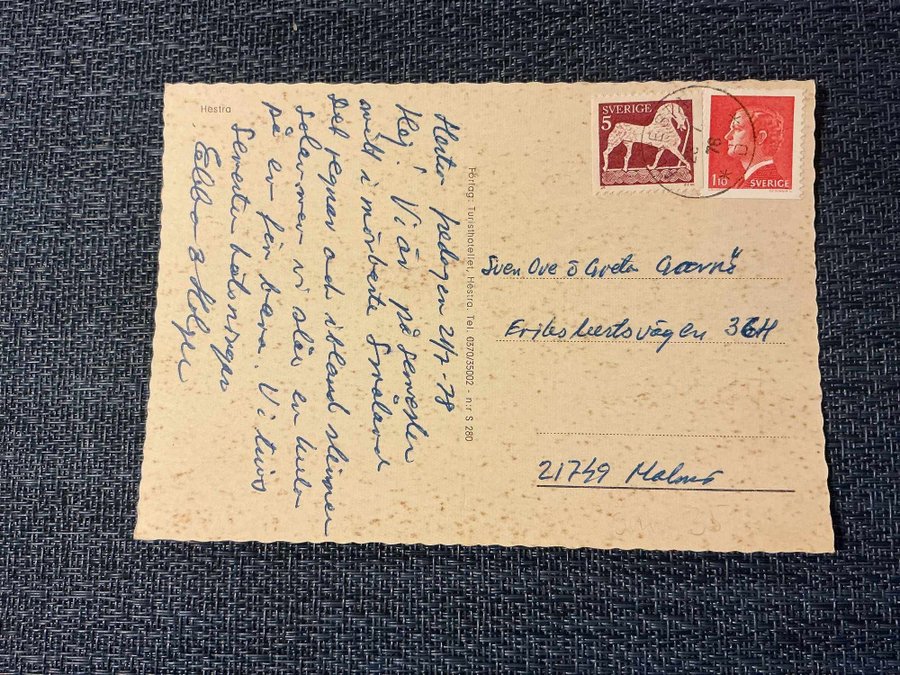 Hestra
Hestra fredagen 21/7-78
Hej! Vi är på semester
mitt i mörkaste Småland
Det regnar och ibland skiner
solen men vi slår en
så är för bara. Vi
Semester hälsningar
Ebba & Holger
Förlag: Turisthotellet, Hestra. Tel. 0370/35002 - n:r S 280
SVERIGE
5
1.10
SVERIGE
78
Sven Ove & Greta
Eriksfeltsvägen 36H
21749 Malmö